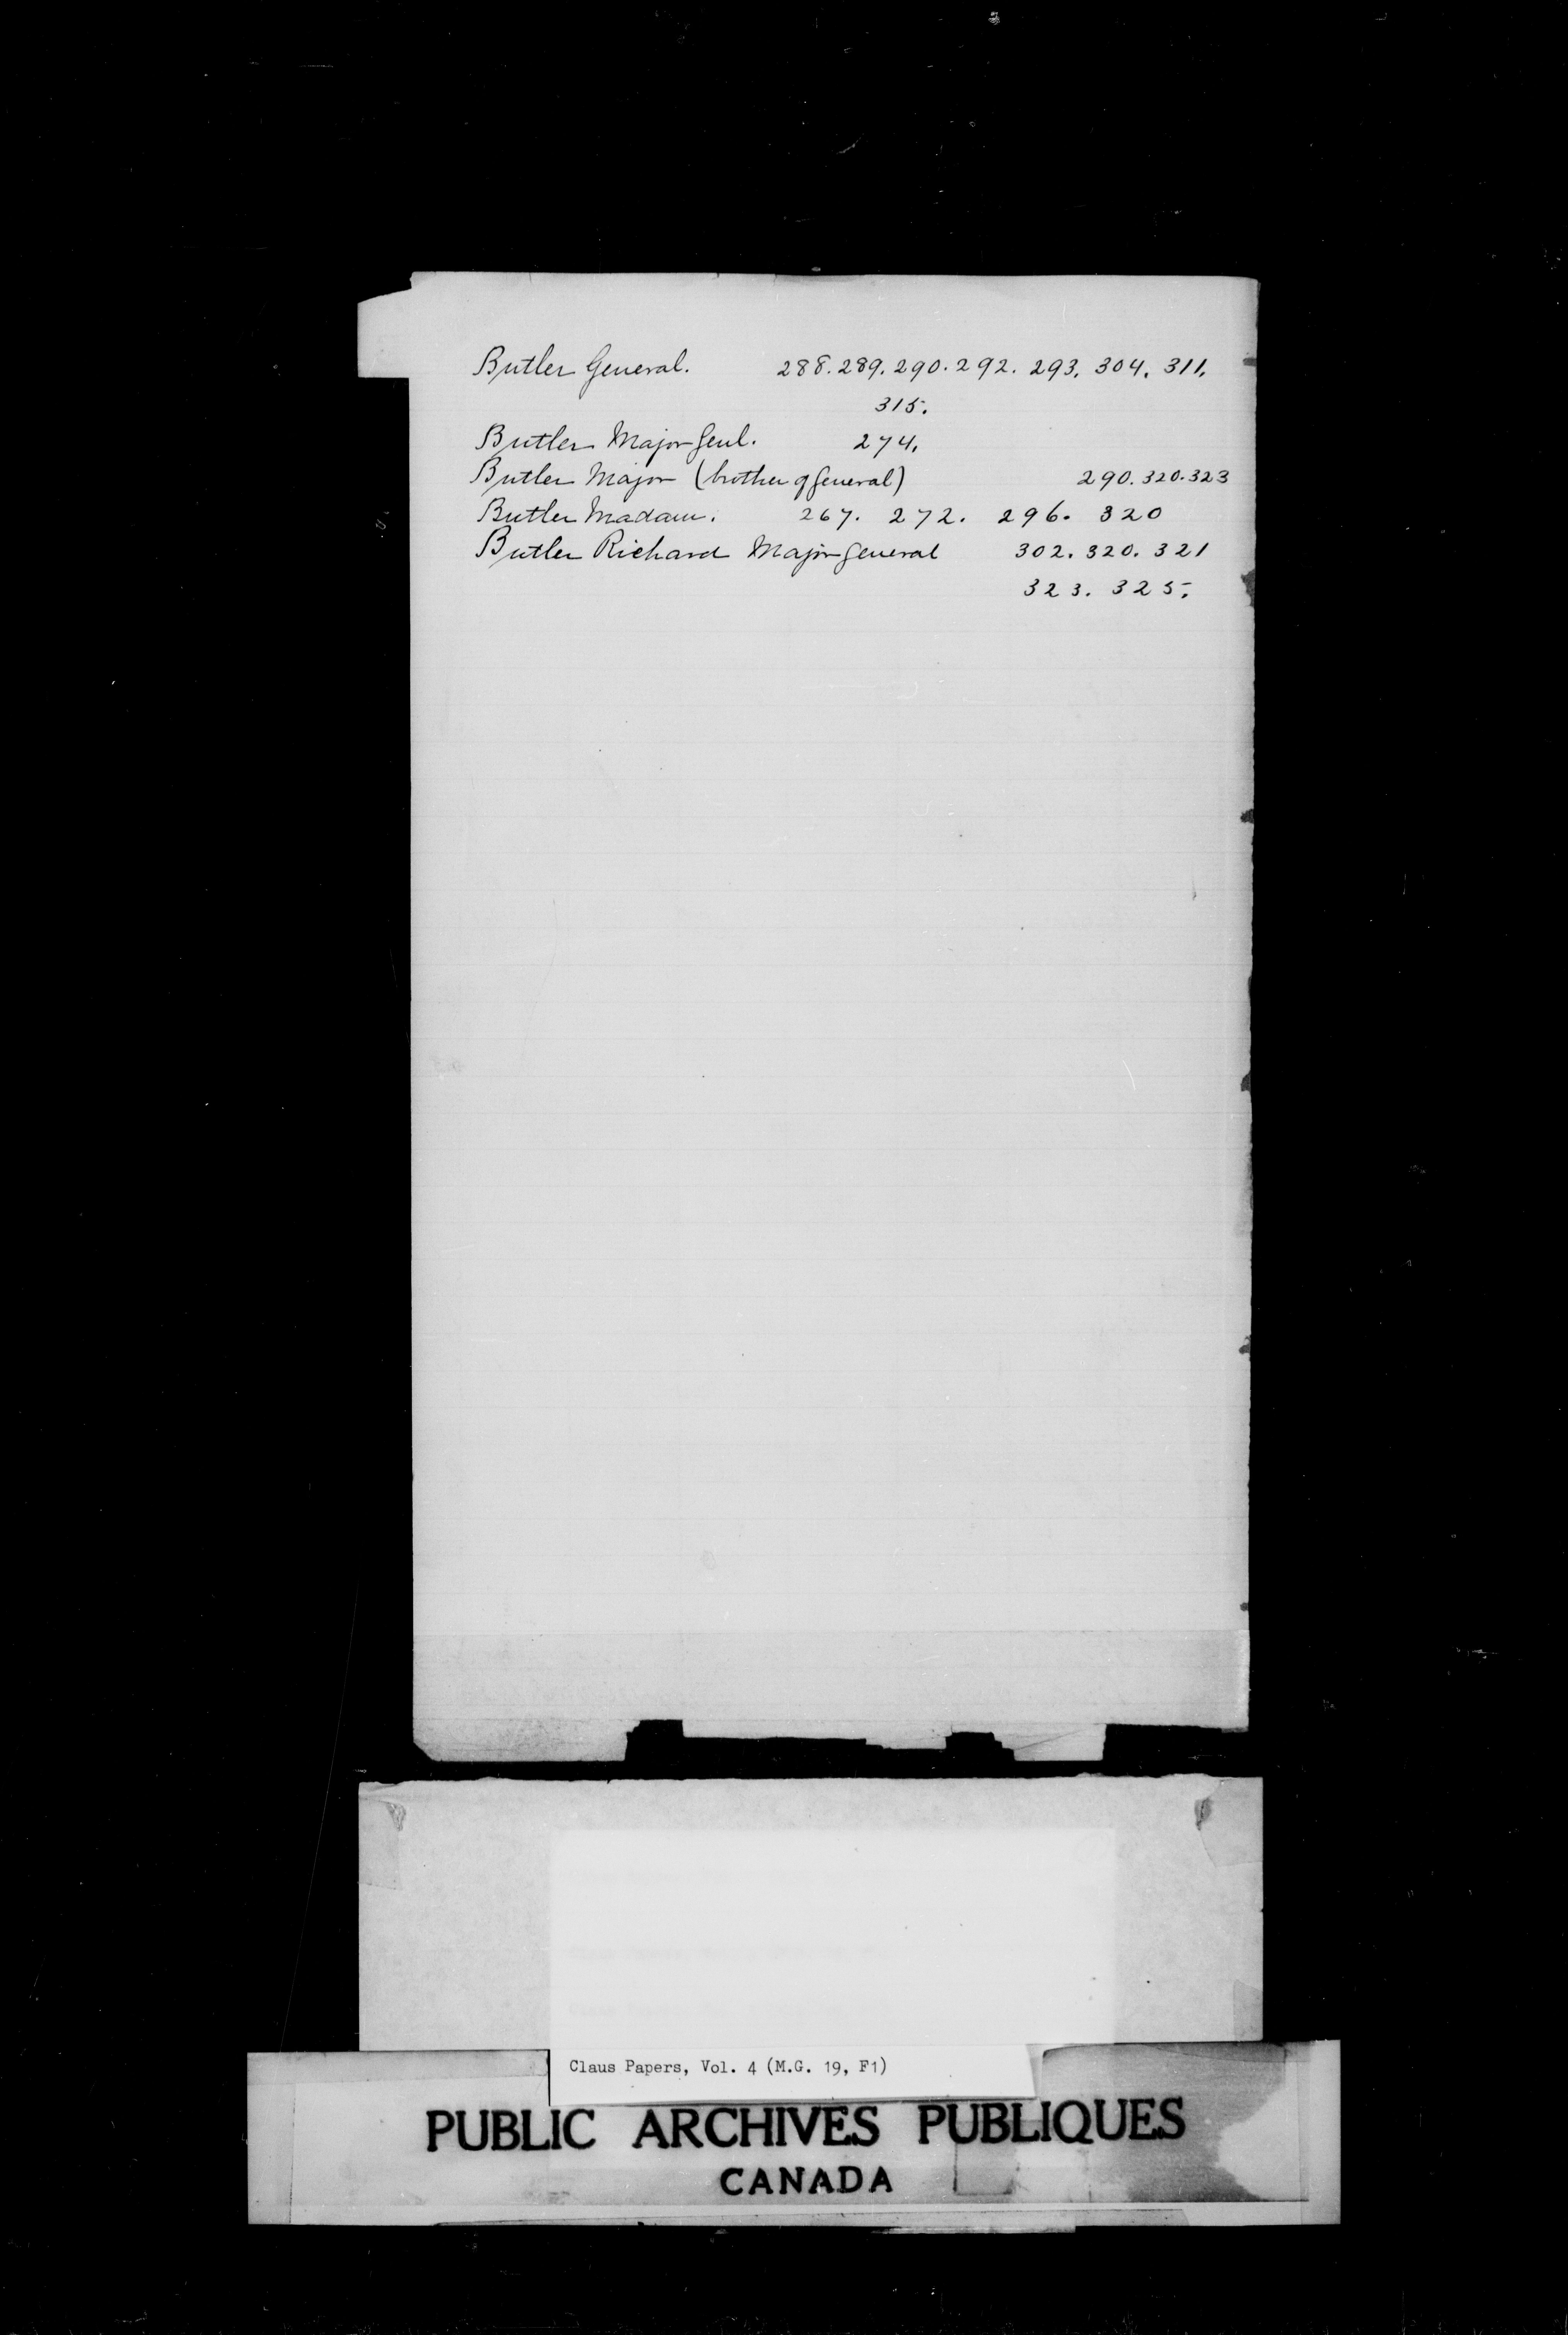 Butler General. 288. 289. 290. 292. 293. 304. 311.
315.
Butler Major Genl. 274.
Butler Major (brother of General) 290. 320. 323
Butler Madam. 267. 272. 296. 320
Butler Richard Major General 302. 320. 321
323. 325.
Claus Papers, Vol. 4 (M.G. 19, F1)
PUBLIC ARCHIVES PUBLIQUES
CANADA